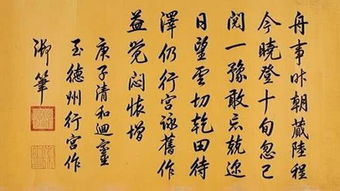 舟事昨朝蕆陸程
今曉登十旬忽已
閱一豫敢忘兢途
日望雲切乾田待
澤仍行宮詠舊作
益覺悶懷增
庚子清和迴蹕
至德州行宮作
御筆